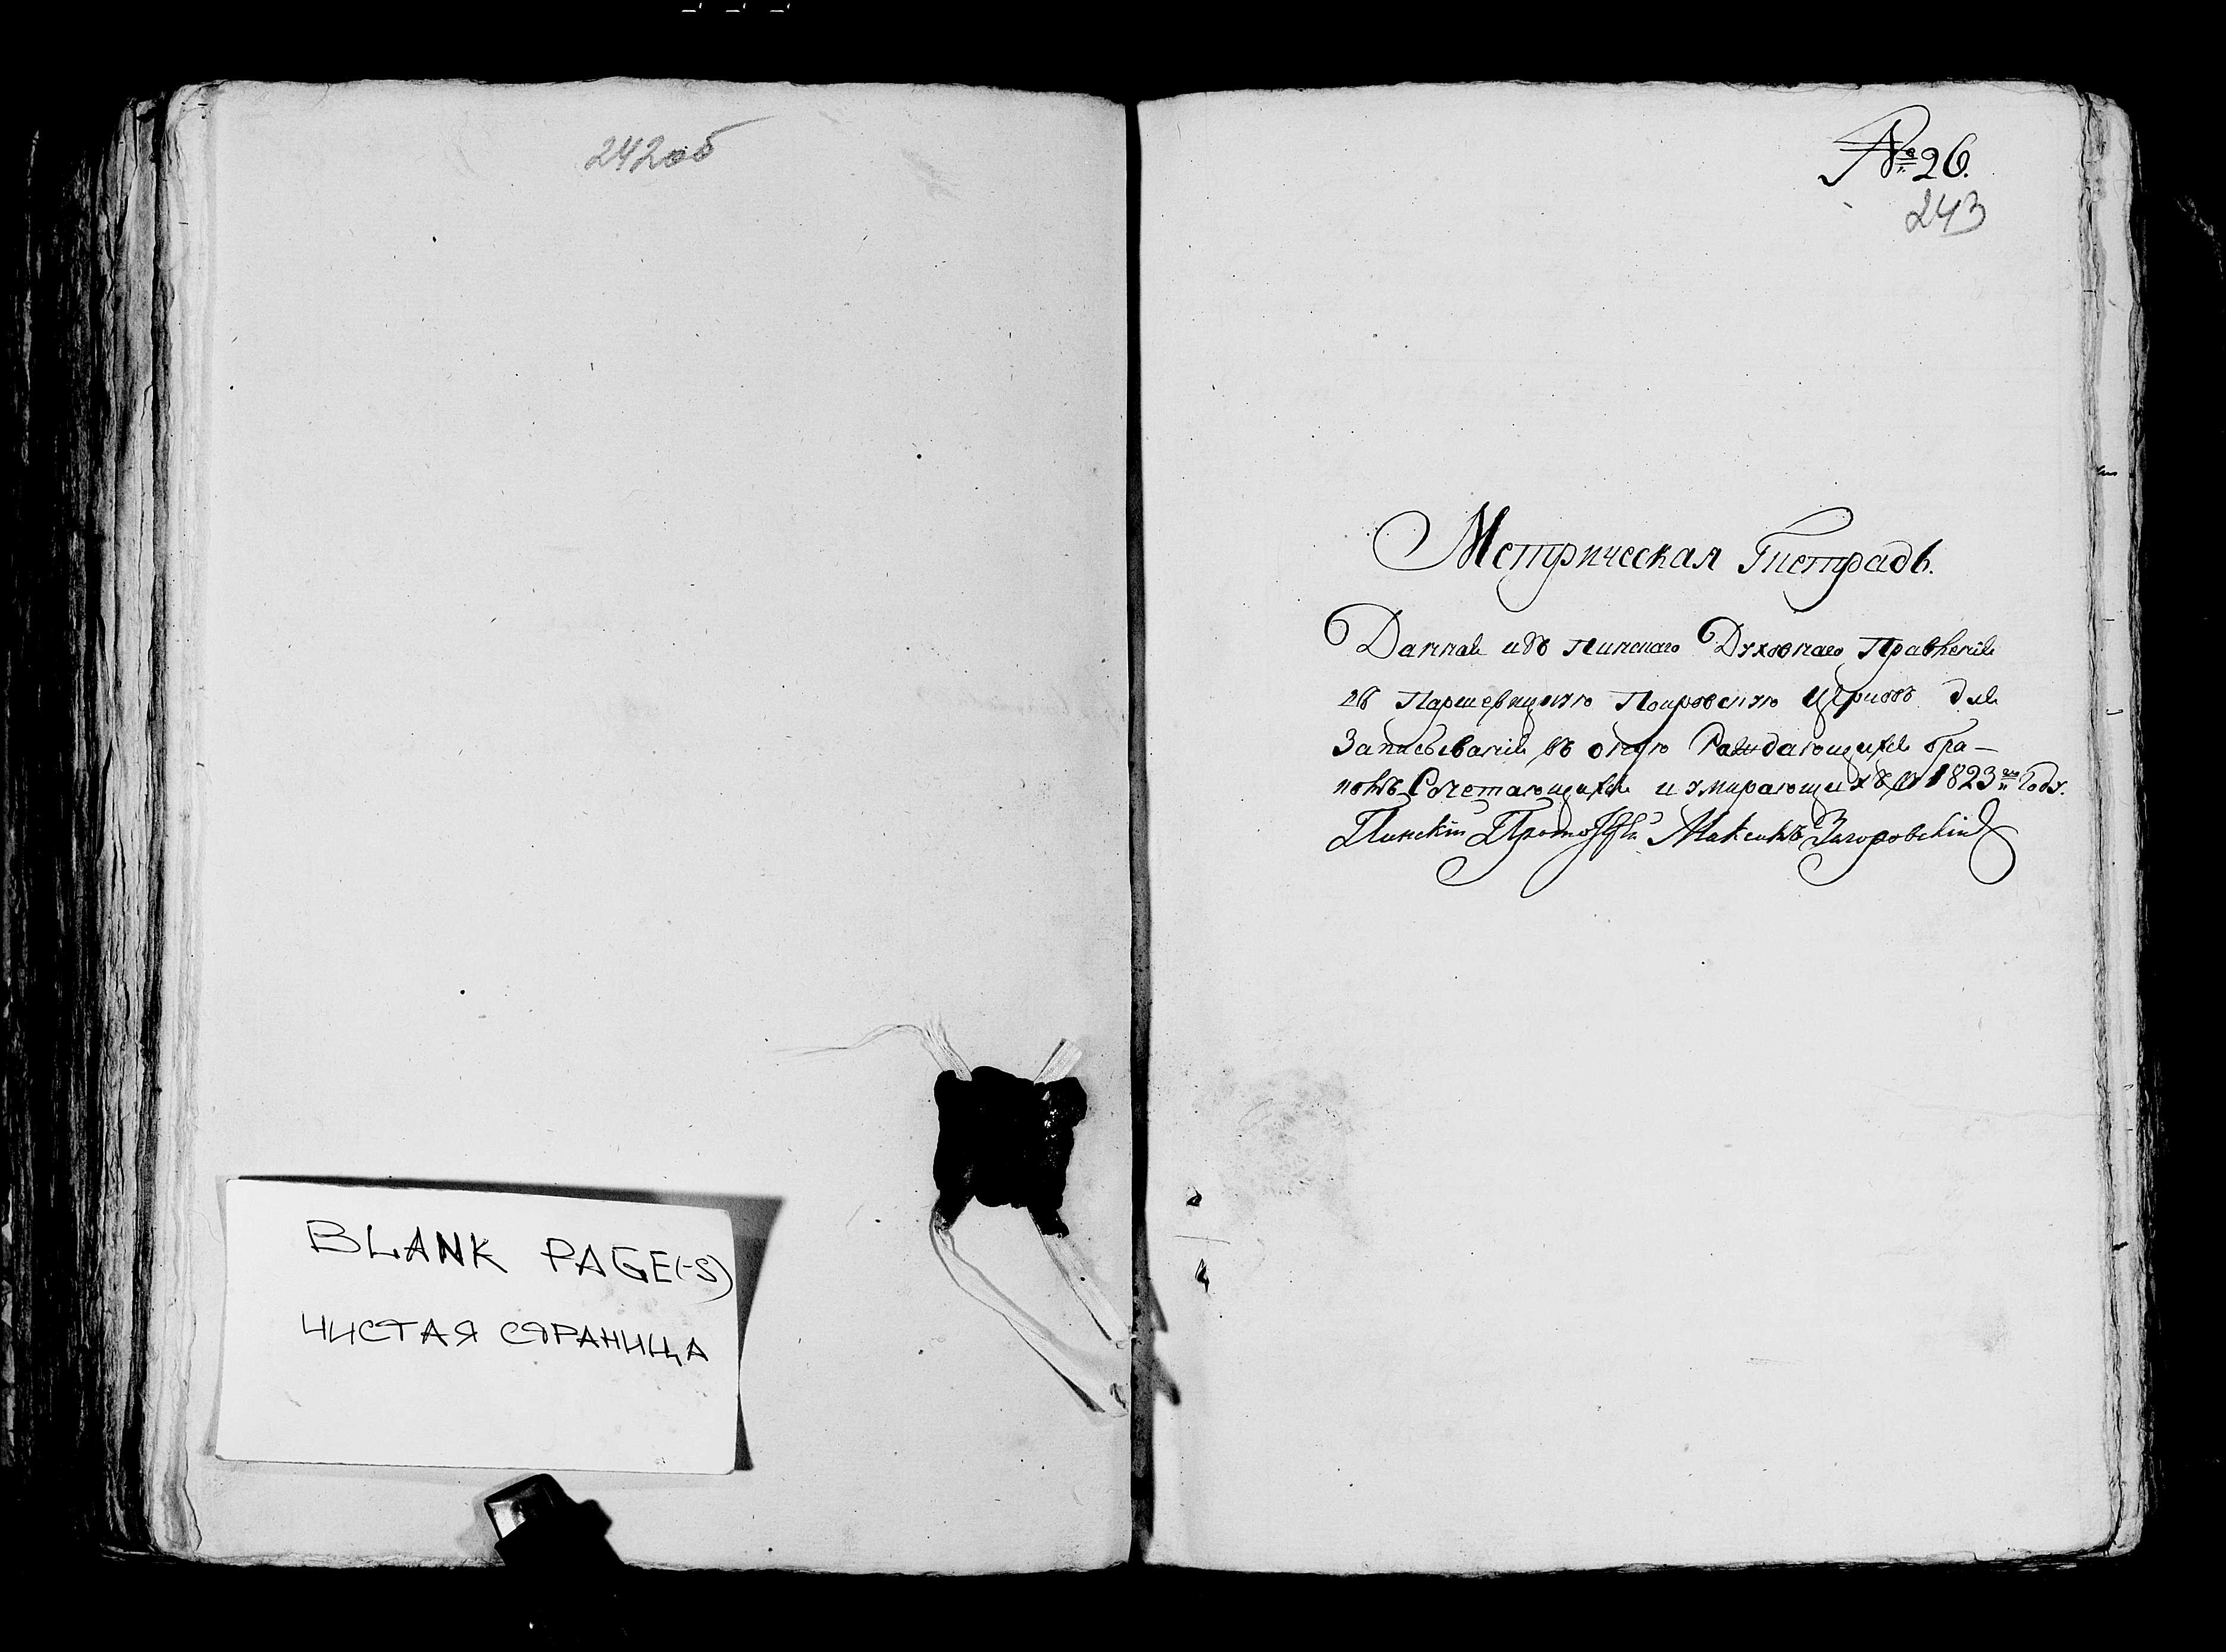 242об
BLANK PAGE(-S)
ЧИСТАЯ СТРАНИЦА
№ 26.
243
Метрическая Тетрадь.
Данная изъ Пинскаго Духовнаго Правленія
въ Паршевицкую Покровскую Церковь для
Записыванія въ оную Раждающихся бра-
комъ Сочетающихся и умирающихъ 1823го Году.
Пинскій Максимъ Загоровскій